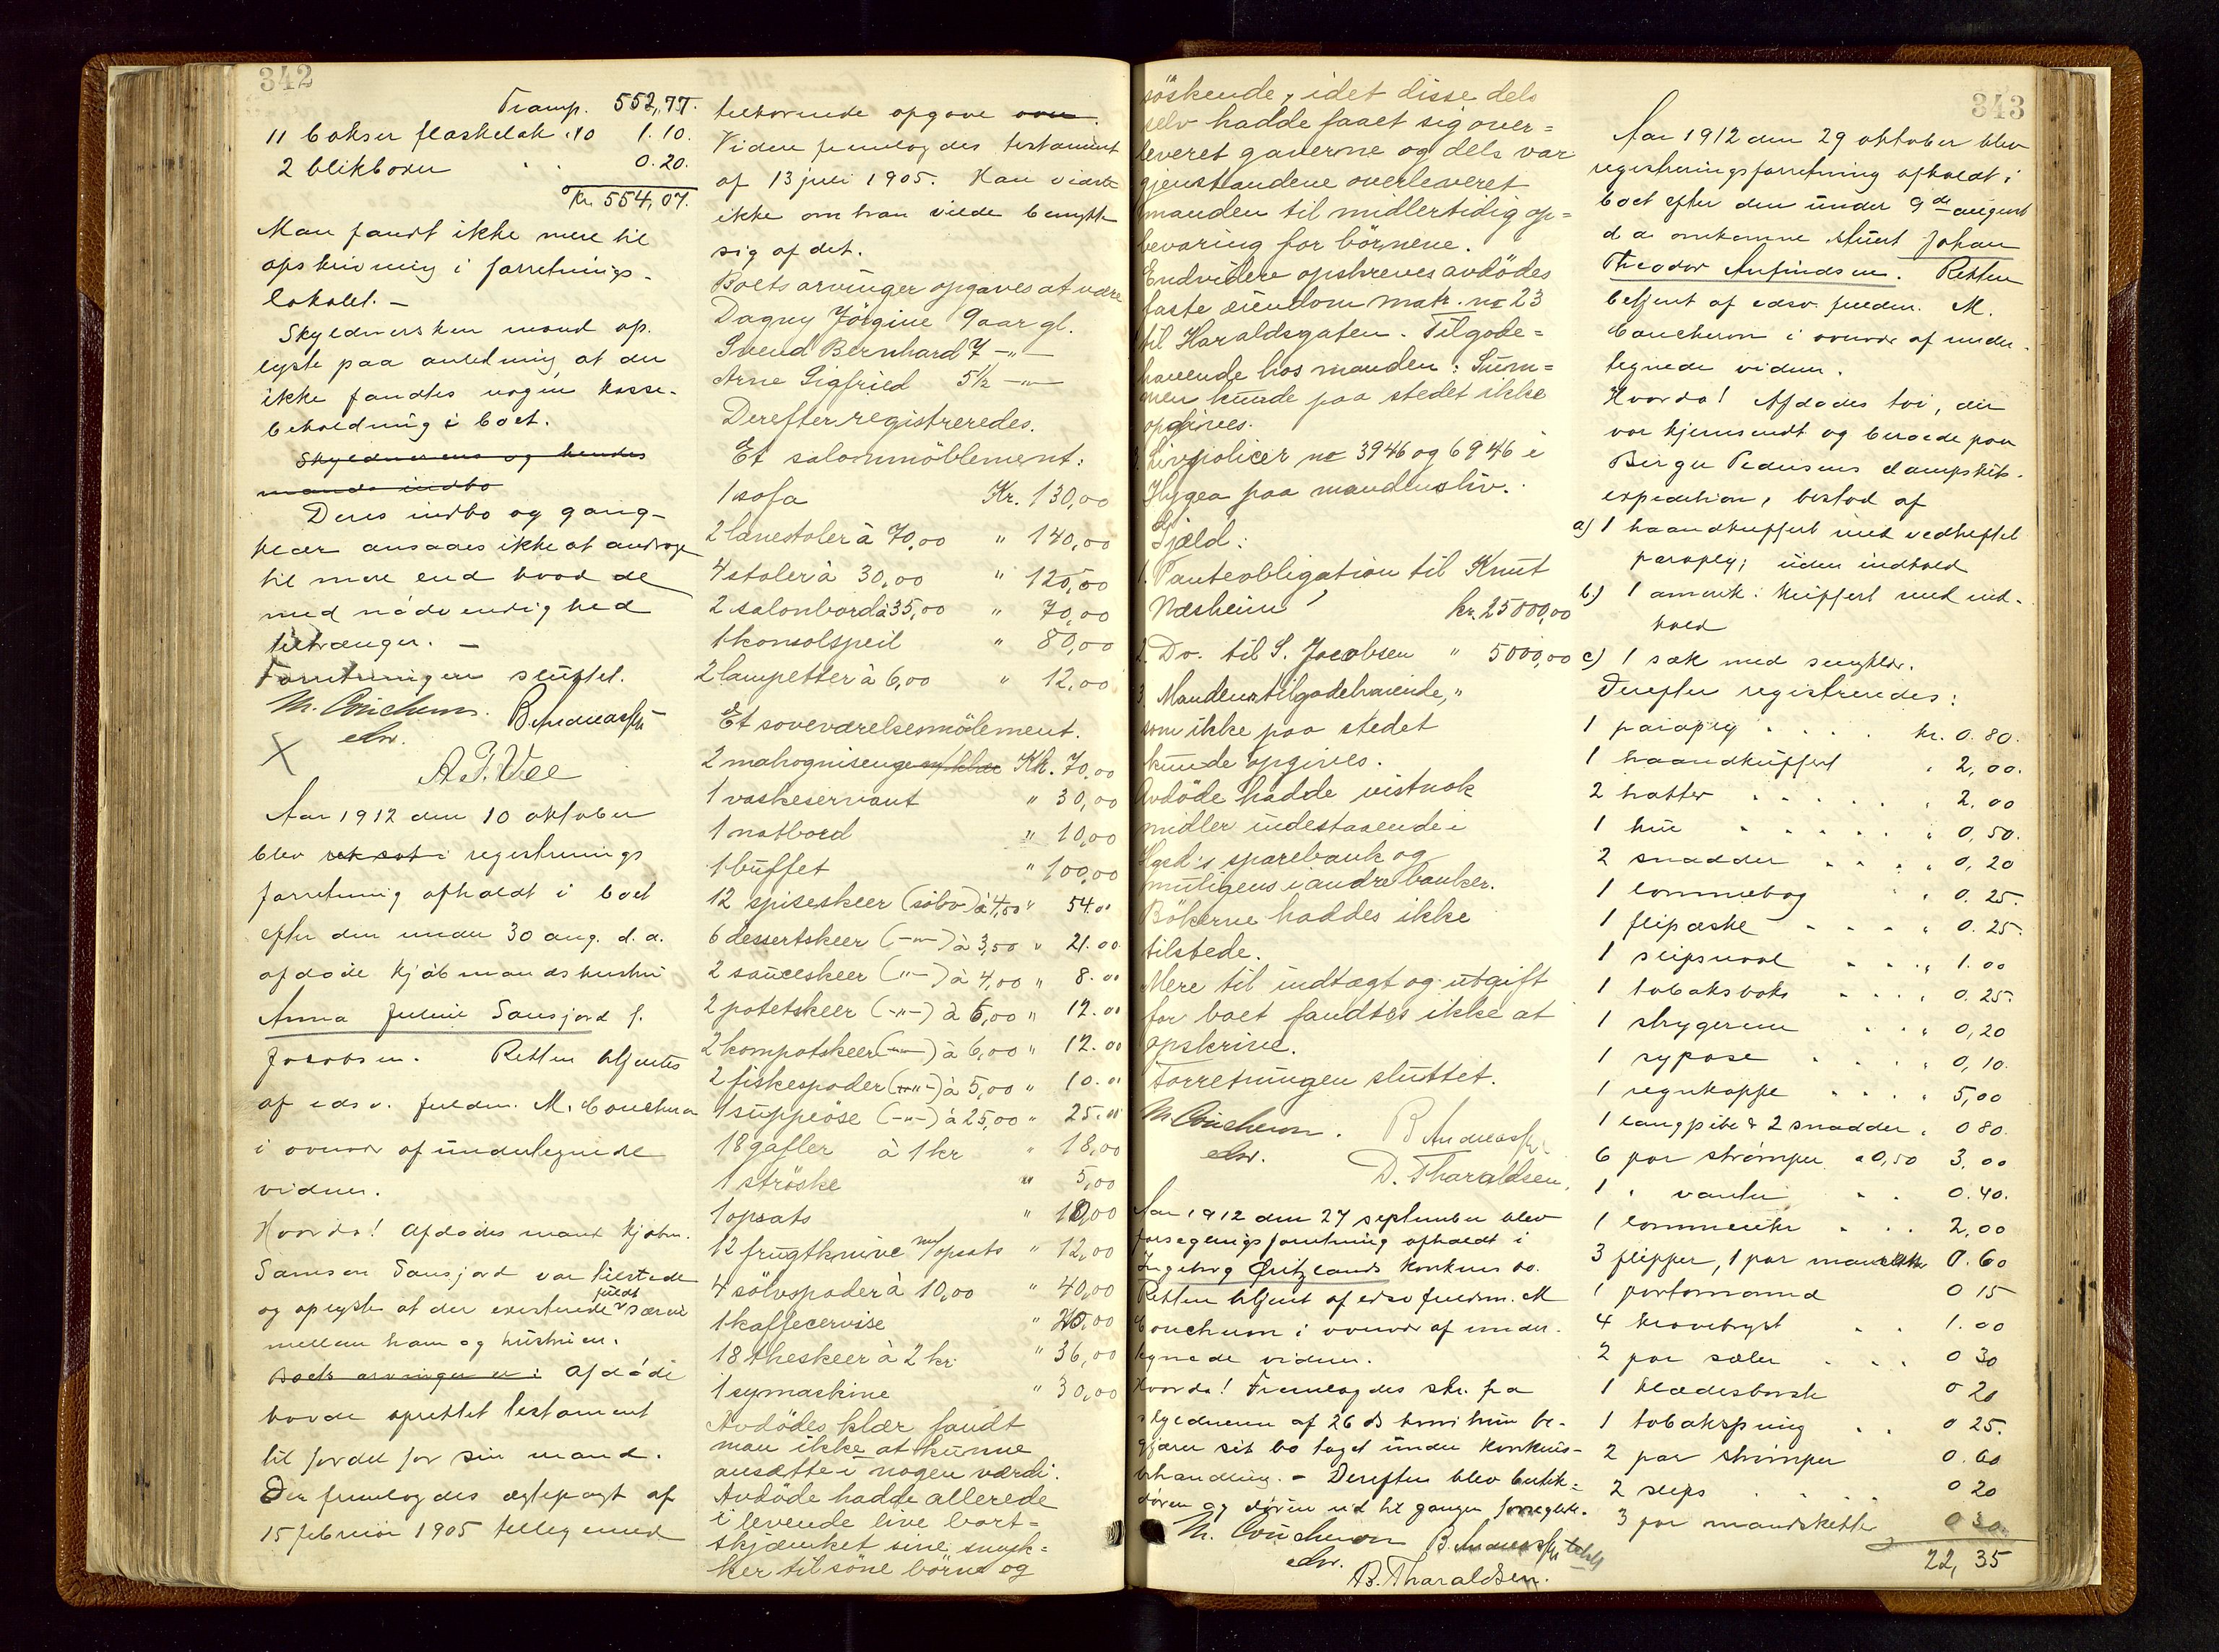 342
Transp. 552,77.
11 bokser flaskelak .10 1.10.
2 blikboxer " " 0.20.
Kr. 554,07.
Man fandt ikke mere til
opskrivning i forretnings-
lokalet. —
Skyldnersken mand op-
lyste paa anledning at der
ikke fandtes nogen kasse-
beholdning i boet.
Skyldnerens og hendes
mands indbo
Deres indbo og gang-
klær ansaaes ikke at andrage
til mere end hvad de
med nødvendighed
tiltrænger. —
Forretningen sluttet.
M. Coucheron. B. Andreassen
edsv.
A. T. Vee
Aar 1912 den 10 oktober
blev ret sat i registrerings
forretning afholdt i boet
efter den under 30 aug. d.a.
afdøde kjøbmandshustru
Anna Juline Sausjord f.
Jacobsen. Retten betjentes
af edsv. fuldm. M. Coucheron
i overvær af undertegnede
vidner.
Hvorda! Afdødes mand kjøbm.
Samson Sausjord var tilstede
og oplyste at der existerede fuldt særeie
mellem ham og hustruen.
Boets arvinger er: Afdøde
havde oprettet testament
til fordel for sin mand.
Der fremlagdes ægtepagt af
15 februar 1905 tillegemed
tilhørende opgave over.
Videre fremlagdes testament
af 13 juli 1905. Han vidste
ikke om han vilde benytte
sig af det.
Boets arvinger opgaves at være
Dagny Jörgine 9 aar gl.
Svend Bernhard 7 —"—
Arne Sigfried 5½ —"—
Derefter registreredes.
Et salonmöblement:
1 sofa Kr. 130,00
2 lænestoler à 70,00 " 140,00
4 stoler à 30,00 " 120,00
2 salonbord à 35,00 " 70,00
1 konsolspeil " 80,00
2 lampetter à 6,00 " 12,00
Et soveværelsesmölement.
2 mahognisenge m/klær Kr. 70,00
1 vaskeservant " 30,00
1 natbord " 10,00
1 buffet " 100,00
12 spiseskeer (sölv) à 4,50 " 54.00
6 dessertskeer (—"—) à 3,50 " 21.00
2 sauceskeer (—"—) à 4,00 " 8.00
2 potetskeer (—"—) à 6,00 " 12.00
2 kompotskeer (—"—) à 6,00 " 12.00
2 fiskespader (—"—) à 5,00 " 10.00
1 suppeöse (—"—) à 25,00 " 25.00
18 gafler à 1 kr " 18,00
1 ströske " 5,00
1 opsats " 10,00
12 frugtknive m/opsats " 12,00
4 sölvspader à 10,00 " 40,00
1 kaffecervise " 25,00
18 theskeer à 2 kr. " 36,00
1 symaskine " 30,00
Avdödes klær fandt
man ikke at kunne
ansætte i nogen værdi.
Avdöde hadde allerede
i levende live bort-
skjænket sine smyk-
ker til sine börn og
söskende, idet disse dels
selv hadde faaet sig over-
leveret gaverne og dels var
gjenstandene overleveret
manden til midlertidig op-
bevaring for börnene.
Endvidere opskreves avdödes
faste eiendom matr. no 23
til Haraldsgaten. Tilgode-
havende hos manden: Sum-
men kunde paa stedet ikke
opgives.
Livspolicer no 3946 og 6946 i
Hygea paa mandens liv.
Gjæld:
1. Panteobligation til Knut
Næsheim kr. 25000,00
2. Do. til S. Jacobsen " 5000,00
3. Mandens tilgodehavende, "
som ikke paa stedet
kunde opgives.
Avdöde hadde vistnok
midler indestaaende i
Hgsd's sparebank og
muligens i andre banker.
Bökerne haddes ikke
tilstede.
Mere til indtægt og utgift
for boet fandtes ikke at
opskrive.
Forretningen sluttet.
M. Coucheron. B. Andreassen
edsv.
D. Tharaldsen.
Aar 1912 den 27 september blev
forseglingsforretning afholdt i
Ingeborg Qvitzlands konkursbo.
Retten betjent af edsv fuldm. M
Coucheron i overvær af under-
tegnede vidner.
Hvorda! Fremlagdes skr. fra
skyldneren af 26 ds hvori hun be-
gjærer sit bo taget under konkurs-
behandling. — Derefter blev butik-
døren og døren ud til gangen forseglet.
M. Coucheron B. Andreassen
edsv.
B. Tharaldsen.
343
Aar 1912 den 29 oktober blev
registreringsforretning afholdt i
boet efter den under 9de august
d a omkomne stuert Johan
Theodor Anfindsen. Retten
betjent af edsv. fuldm. M.
Coucheron i overvær af under-
tegnede vidner.
Hvorda! Afdødes tøi, der
var hjemsendt og beroede paa
Birger Pedersens dampskibs-
expedition, bestod af
a) 1 haandkuffert med vedheftet
paraply; uden indhold
b.) 1 amerik. kuffert med ind-
hold
c) 1 sæk med sengklær.
Derefter registreredes:
1 paraply . . . . kr. 0.80.
1 haandkuffert " 2,00.
2 hatter . . . . . " 2,00
1 hue . . . . . " 0,50.
2 snadder . . . . " 0,20
1 lommebog " " 0.25.
1 flipæske . . . . " 0.25.
1 slipsnaal . . . " 1.00
1 tobaksboks . . . . " 0.25.
1 strygerem . . " 0,20
1 sypose . . . . " 0,10.
1 regnkappe . . . . " 5,00
1 langpibe & 2 snadder " 0 80.
6 par strømper à 0,50 3,00
1 " vanter . . 0.40.
1 lommeuhr . . . 2,00
3 flipper, 1 par mansketter 0.60
1 portomonnæ 0 15
4 kravebryst . . 1.00
2 par sæler . . . 0 30
1 klædesbørste 0 20
1 tobakspung . . 0 25.
2 par strømper 0.60
2 slips . . . . 0 20
3 par mandsketter 0 30
22,35